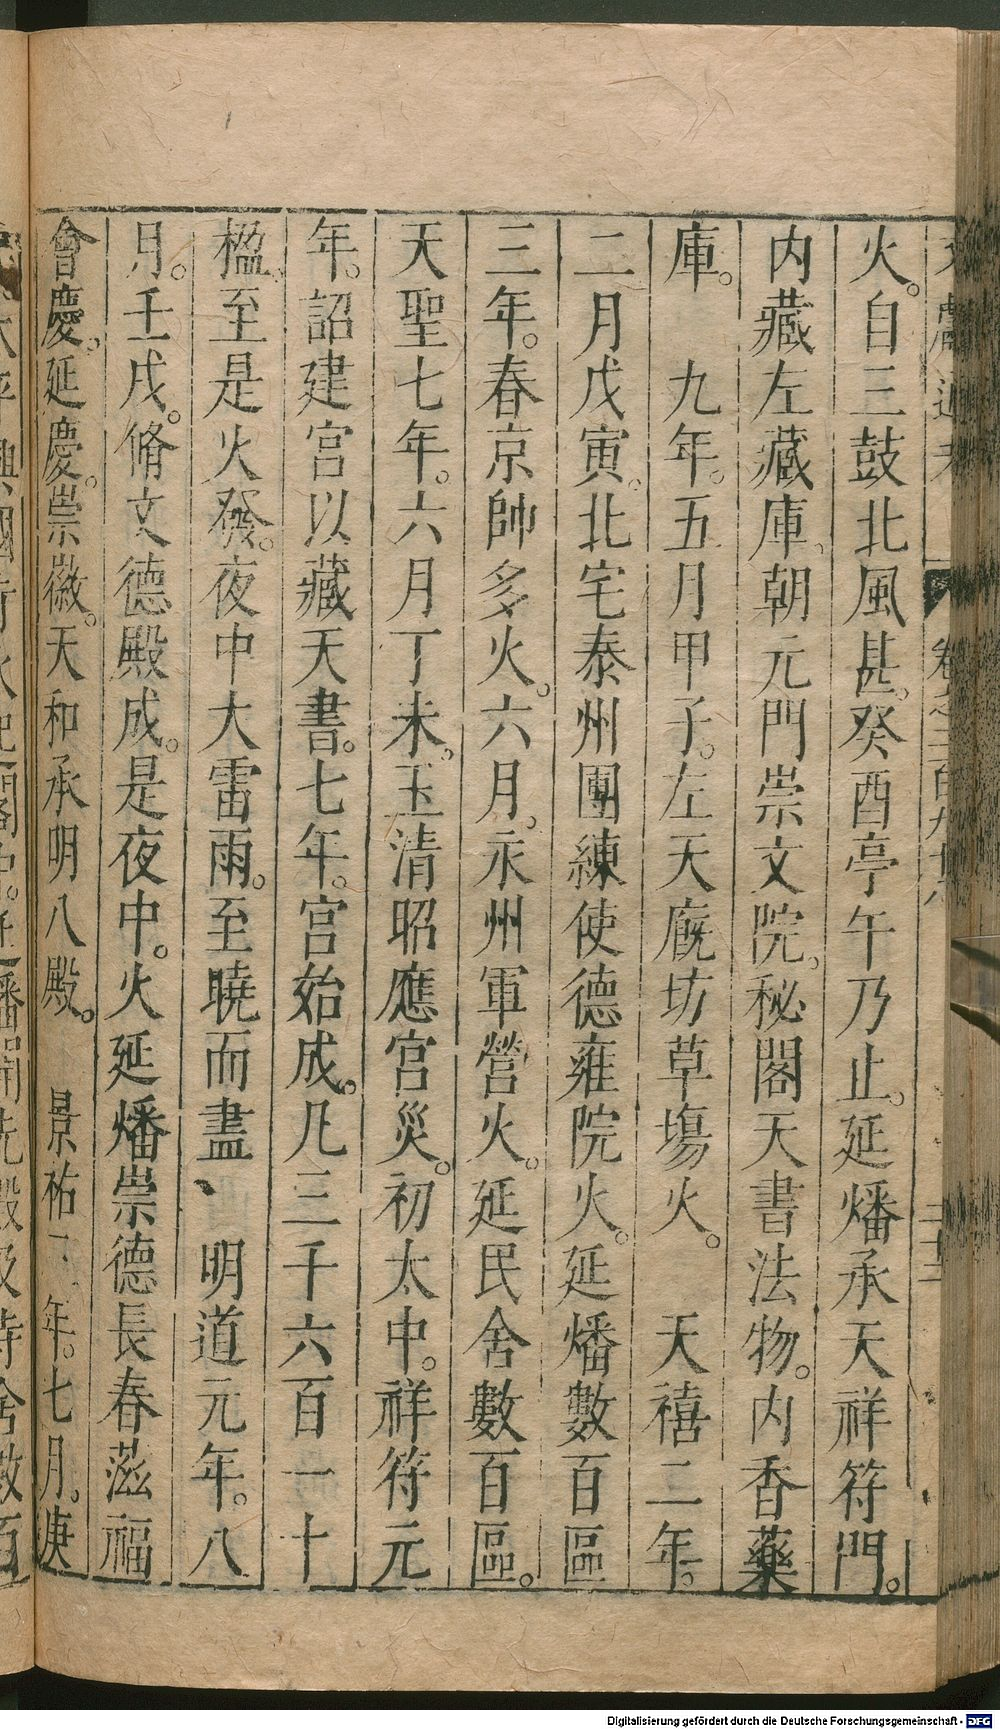 文獻通考 卷之二百九十八
火。自三鼓北風甚。癸酉亭午乃止。延燔承天祥符門。
内藏左藏庫。朝元門崇文院。秘閣天書法物。内香藥
庫。 九年。五月甲子。左天廐坊草塲火。 天禧二年。
二月戊寅。北宅泰州團練使德雍院火。延燔數百區
三年。春京帥多火。六月。永州軍營火。延民舍數百區。
天聖七年。六月丁未。玉清昭應宮災。初太中。祥符元
年。詔建宮以藏天書。七年。宮始成。凡三千六百一十
楹。至是火發。夜中大雷雨。至曉而盡 明道元年。八
月。壬戌。脩文德殿成。是夜中。火延燔崇德長春滋福
會慶。延慶。崇徽。天和承明八殿。 景祐 年。七月。庚
太平興國 延燔開先殿及侍舍數百
Digitalisierung gefördert durch die Deutsche Forschungsgemeinschaft - DFG